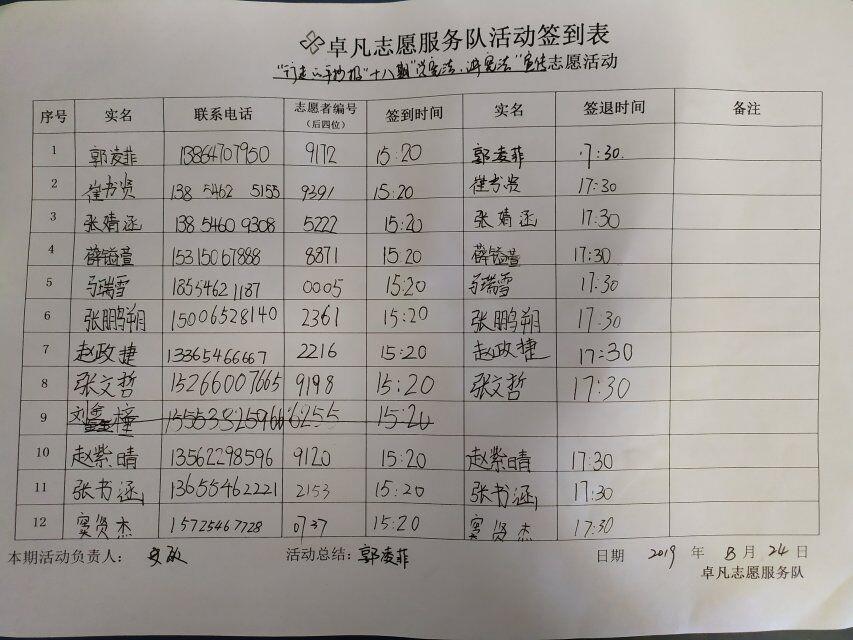 卓凡志愿服务队活动签到表
"十八期"说宪法、讲宪法"宣传志愿活动
序号 实名 联系电话 志愿者编号（后四位） 签到时间 实名 签退时间 备注
1 郭凌菲 13864707950 9172 15:20 郭凌菲 7:30.
2 崔书贤 138 5462 5155 9391 15:20 崔书贤 17:30
3 张婧涵 138 5460 9308 5222 15:20 张婧涵 17:30
4 薛镒萱 15315067888 8871 15:20 薛镒萱 17:30
5 马瑞雪 18554621187 0005 15:20 马瑞雪 17:30
6 张鹏朔 15006528140 2361 15:20 张鹏朔 17:30
7 赵政捷 13365466667 2216 15:20 赵政捷 17:30
8 张文哲 15266007665 9198 15:20 张文哲 17:30
9 15553825966 6255 15:20
10 赵紫晴 13562298596 9120 15:20 赵紫晴 17:30
11 张书涵 13655462221 2153 15:20 张书涵 17:30
12 窦贤杰 15725467728 0737 15:20 窦贤杰 17:30
本期活动负责人： 活动总结：郭凌菲 日期 2019 年 8 月 24 日
卓凡志愿服务队